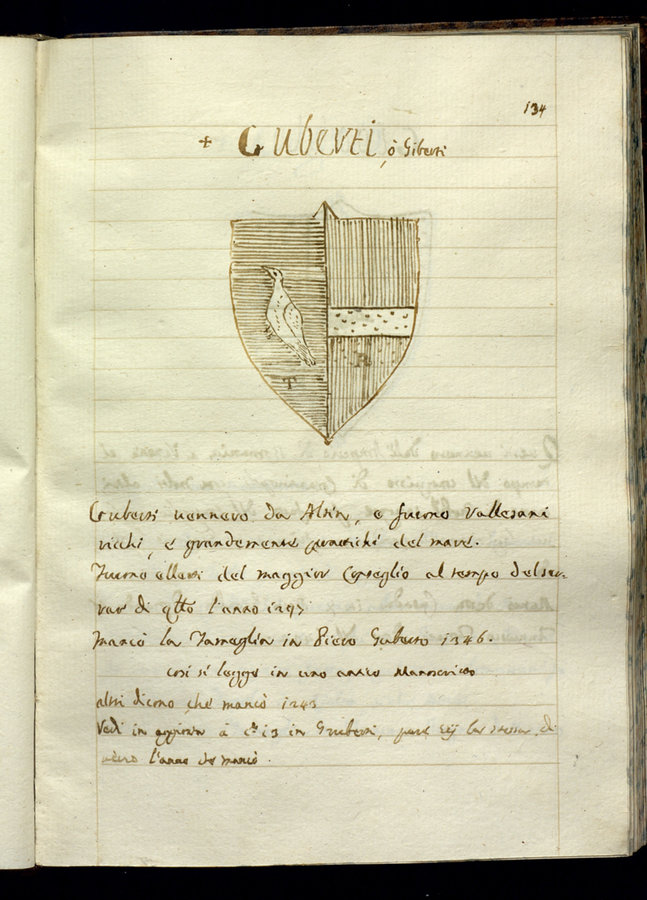 134
+ Guberti, ò Giberti
T R
Guberti uennero da Altin, e furono Vallesani
ricchi, e grandemente pratichi del mare.
Furono elletti del maggior Conseglio al tempo del ser-
rar di qtto l'anno 1297
Mancò la Fameglia in Piero Guberto 1346.
cosi si legge in uno antico Manoscritto
altri dicono che mancò 1243
Vedi in aggionta à c.te 13 in Gruberti, pare sij la stessa, di
uerso l'anno de mancò.